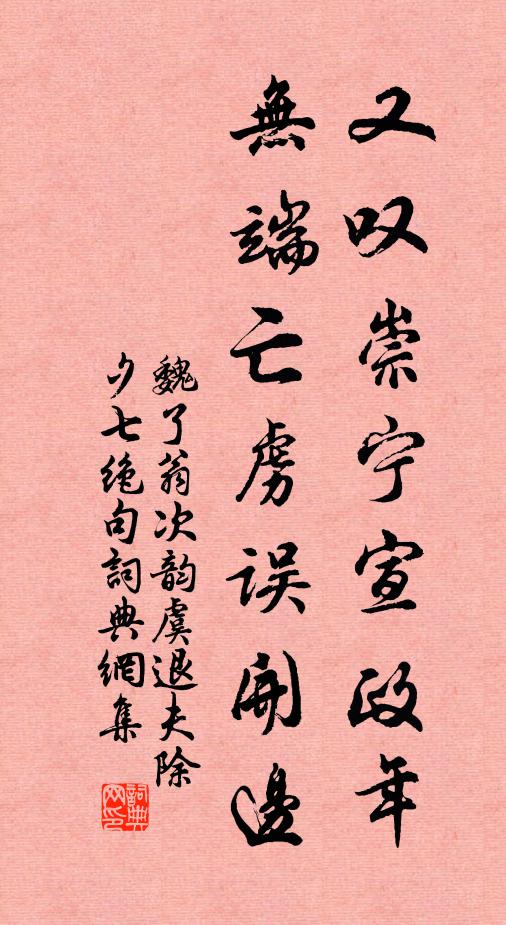 又叹崇宁宣政年
無端亡虏误開邊
魏了翁次韵虞退夫除
夕七绝句詞典網集
詞典
网印